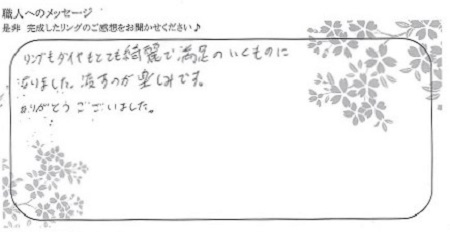 職人へのメッセージ
是非 完成したリングのご感想をお聞かせください♪
リングもダイヤもとても綺麗で満足のいくものに
なりました。渡すのが楽しみです。
ありがとうございました。